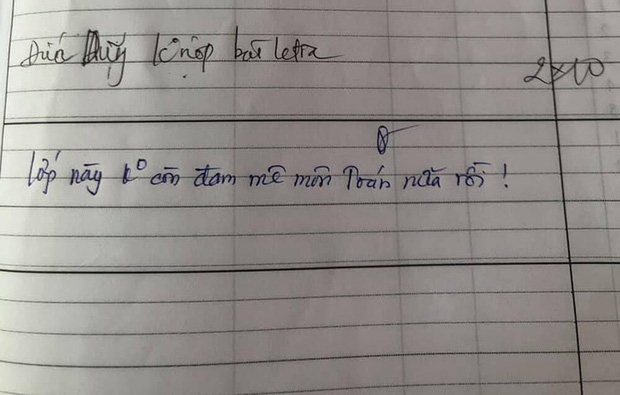 Đức Duy k° nộp bài
2x10
Lớp này k° còn đam mê môn Toán nữa rồi !